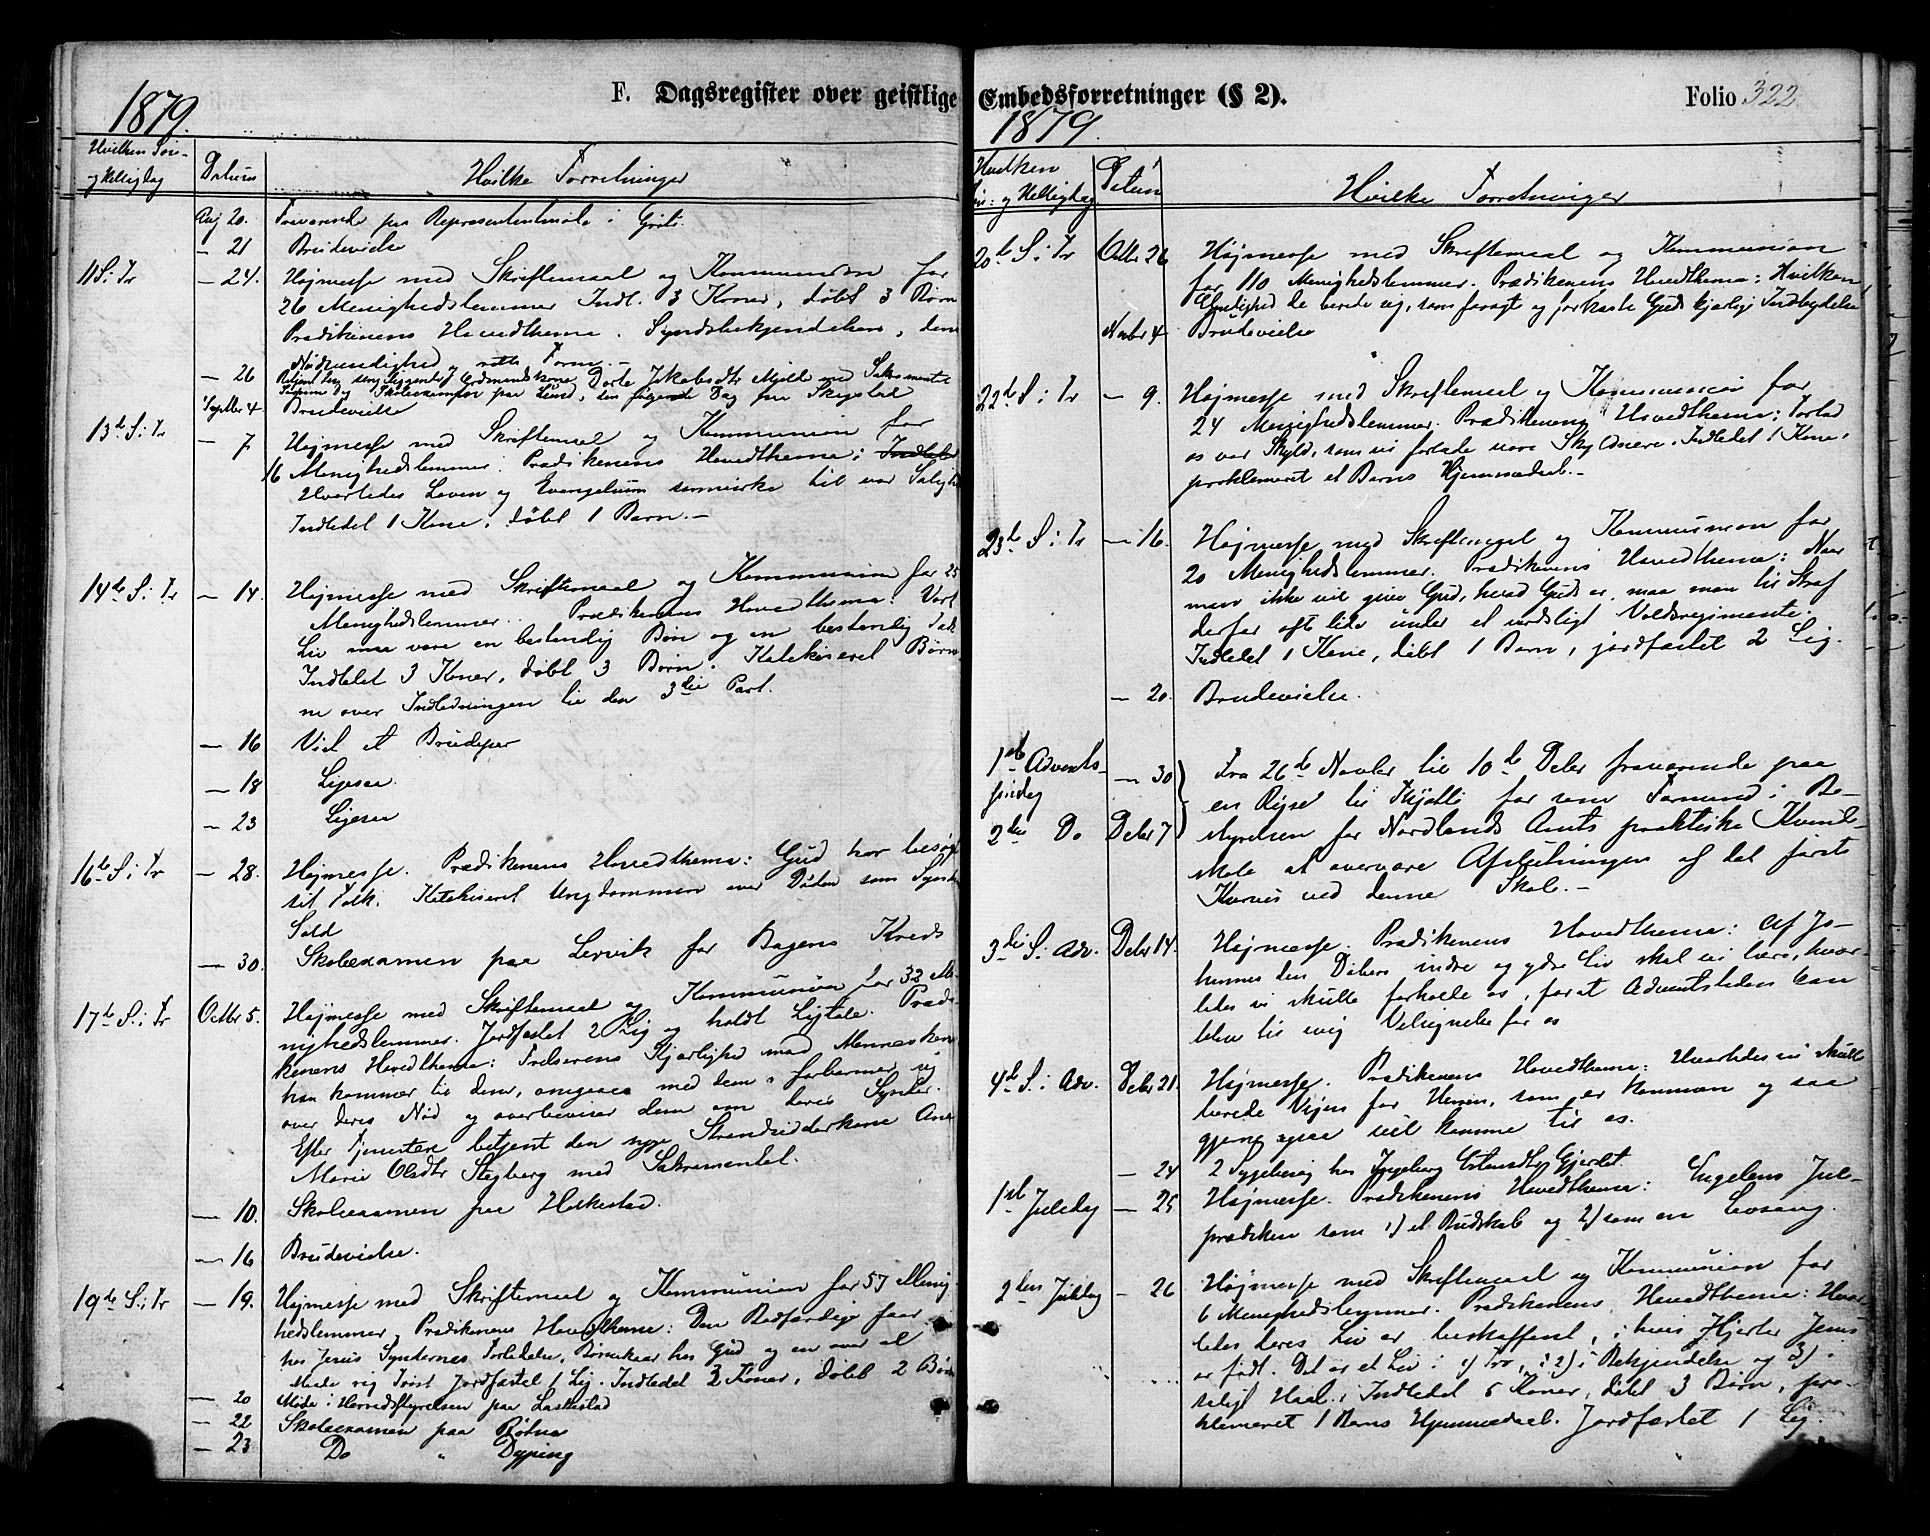 F. Dagsregister over geistlige Embedsforretninger (§ 2).
Folio 322
1879.
Hvilken Søn-
og Helligdag
Datum
Hvilke Forretninger
Aug 20. Fraværende paa Representantmøde i
— 21 Brudevielse
11 S. i Tr — 24. Højmesse med Skriftemaal og Kommunion for
26 Menighedslemmer Indl. 3 Koner, døbt 3 Børn
Prædikenens Hovedthema. Syndsbekjendelsen, dens
Nødvendighed og rette Form. —
— 26 Dorte Jakobsdtr Mjelde med Sakramentet
og Skoleexamen paa Lund, den følgende Dag paa Skjelstad
Septbr 4 Brudevielse
13de S. i Tr — 7 Højmesse med Skriftemaal og Kommunion for
16 Menighedslemmer. Prædikenens Hovedthema: Indledet
Hvorledes Loven og Evangelium samvirke til vor Salighed
Indledet 1 Kone, døbt 1 Barn. —
14de S. i Tr — 14. Højmesse med Skriftemaal og Kommunion for 25
Menighedslemmer. Prædikenens Hovedthema: Vort
Liv maa være en bestandig Bøn og en bestandig Tak
Indledet 3 Koner, døbt 3 Børn. Katekiseret Børne-
ne over Indledningen til den 3die Part.
— 16 Viet et Brudepar
— 18 Ligesaa
— 23 Ligesaa
16de S. i Tr — 28. Højmesse. Prædikenens Hovedthema: Gud har besøgt
sit Folk. Katekiseret Ungdommen over Døden som Syndens
Sold
— 30. Skoleexamen paa Lervik for Bogens Kreds
17de S. i Tr Octbr 5. Højmesse med Skriftemaal og Kommunion for 32 Me-
nighedslemmer. Jordfæstet 2 Lig og holdt Ligtale. Prædi-
kenens Hovedthema: Frelserens Kjærlighed mod Menneskene
han kommer til dem, omgaaes med dem, forbarmer sig
over deres Nød og overbeviser dem om deres Synder.
Efter Tjenesten betjent den syge Strandsidderkone Ane
Marie Olsdtr Stegberg med Sakramentet.
— 10. Skoleexamen paa Holkestad.
— 16 Brudevielse.
19de S. i Tr — 19. Højmesse med Skriftemaal og Kommunion for 57 Menig-
hedslemmer, Prædikenens Hovedthema: Den Bodfærdige faar
hos Jesus Syndernes Forladelse, Barnekaar hos Gud og en over al
Maade rig Trøst. Jordfæstet 1 Lig. Indledet 2 Koner, døbt 2 Børn
— 20 Møde i Herredsstyrelsen paa Laskestad
— 22 Skoleexamen paa Røtnes
— 23 Do " Dyping
1879.
Hvilken
Søn- og Helligdag
Datum
Hvilke Forretninger
20de S. i Tr Octbr 26 Højmesse med Skriftemaal og Kommunion
for 110 Menighedslemmer. Prædikenens Hovedthema: Hvilken
Elendighed de berede sig, som foragt og forkaste Guds kjærlige Indbydelse
Novbr 4 Brudevielse
22de S. i Tr — 9. Højmesse med Skriftemaal og Kommunion for
24 Menighedslemmer. Prædikenens Hovedthema: Forlad
os vor Skyld, som vi forlade vore Skyldnere. Indledet 1 Kone,
proklameret et Barns Hjemmedaab. —
23de S. i Tr — 16. Højmesse med Skriftemaal og Kommunion for
20 Menighedslemmer. Prædikenens Hovedthema: Naar
man ikke vil give Gud, hvad Guds er, maa man til Straf
derfor oft lide under et verdsligt Voldsregimente.
Indledet 1 Kone, døbt 1 Barn, jordfæstet 2 Lig.
— 20. Brudevielse.
1ste Advents-
søndag — 30 Fra 26de Novbr til 10de Decbr fraværende paa
en Rejse til for som Formand i Be-
2den Do Decbr 7 styrelsen for Nordlands Amts praktiske Kvinde-
skole at overvære Afslutningen af det første
Kursus ved denne Skole. —
3die S. i Adv. Decbr 14. Højmesse. Prædikenens Hovedthema: Af Jo-
hannes den Døbers indre og ydre Liv skal vi lære, hvor-
ledes vi skulle forholde os, forat Adventstiden kan
blive til evig Velsignelse for os
4de S. i Adv. Decbr 21. Højmesse. Prædikenens Hovedthema: Hvorledes vi skulle
berede Vejen for Herren, som er kommen og saa
gjerne ogsaa vil komme til os.
— 24 2 Sygebesøg hos Ingeborg Gjerdet.
1ste Juledag — 25 Højmesse. Prædikenens Hovedthema: Englens Jule-
prædiken som 1) et Budskab og 2) som en Lovsang.
2den Juledag — 26 Højmesse med Skriftemaal og Kommunion for
6 Menighedslemmer. Prædikenens Hovedthema: Hvor-
ledes deres Liv er beskaffent, i hvis Hjerter Jesus
er født. Det er et Liv i 1) Tro, i 2) i Bekjendelse og 3)
saligt Haab. Indledet 5 Koner, døbt 3 Børn, pro-
klameret 1 Barns Hjemmedaab. Jordfæstet 1 Lig.